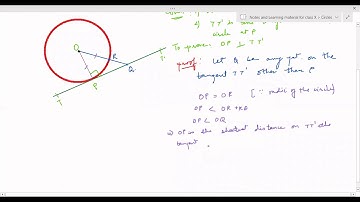 Notes and Learning material for class X - Circles
if TT' is
circle at P
To prove: OP ⊥ TT'
Proof: Let Q be any pt on the
tangent TT' other than P
OP = OR [∵ radii of the circle]
OP < OR + RQ
OP < OQ
⇒ OP is the shortest distance on TT' the
tangent
O
R
Q
P
T
T'